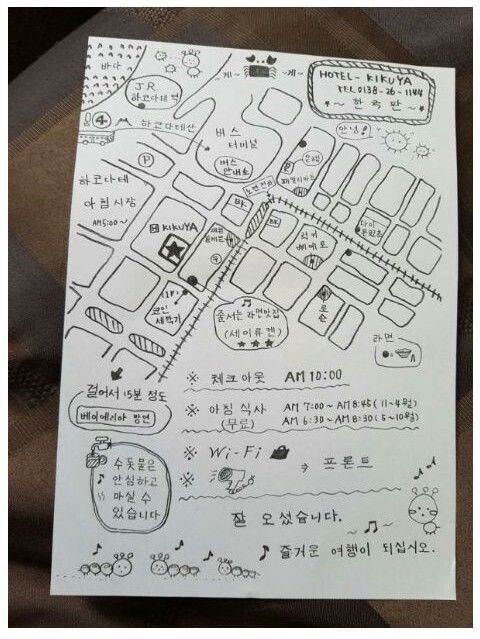 바다
~게~ ~게~
HOTEL-KIKUYA
TEL 0138-26-1144
~한국판~
JR
하코다테역
안녕!
④
하코다테산
버스
터미널
버스
안내소
P
은행
패밀리마트
P
노면전차
하코다테
아침시장
AM 5:00~
H KIKUYA
BK
BK
럭키
삐에로
다이
몬요코초
코인
세탁기
로손
♫
줄서는 라면맛집
(세이류켄)
★★★
라면
걸어서 15분 정도
베이에리아 방면
※ 체크아웃 AM 10:00
※ 아침 식사 AM 7:00~AM 8:45 (11-4월)
(무료) AM 6:30~AM 8:30 (5~10월)
※ Wi-Fi
※ ⇒ 프론트
수돗물은
안심하고
마실 수
있습니다
잘 오셨습니다.
~♫~
♪ 즐거운 여행이 되십시오.